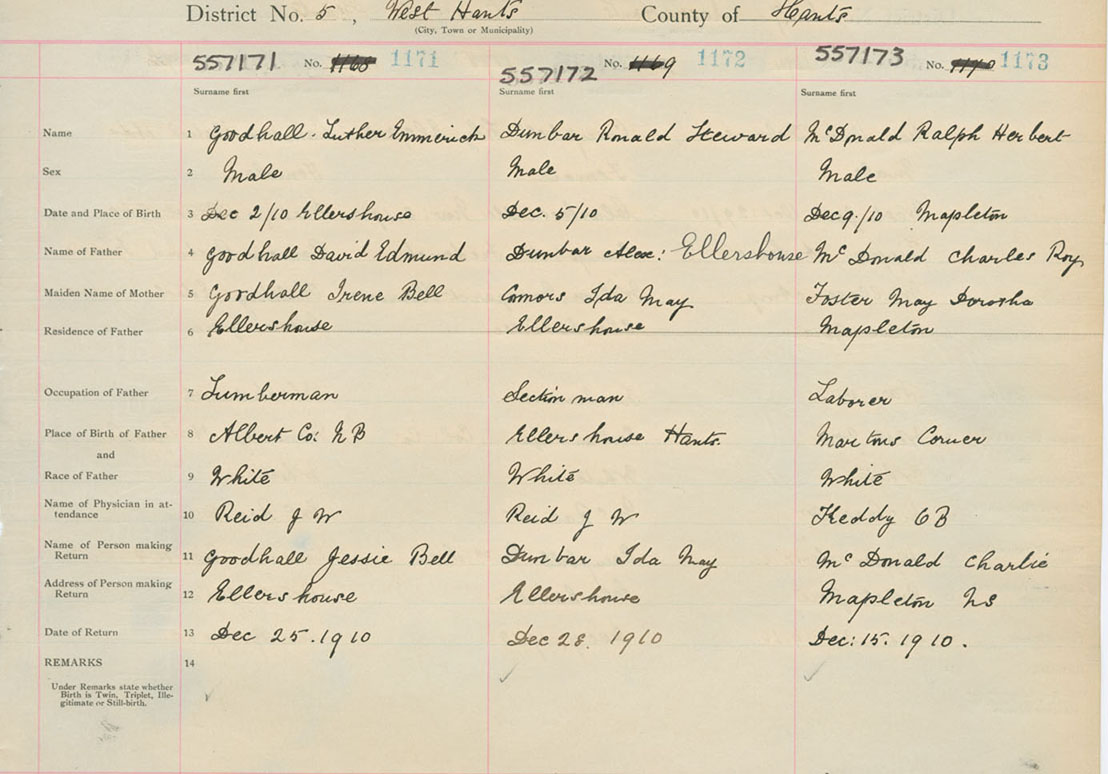 District No. 5, West Hants County of Hants
(City, Town or Municipality)
557171 No. 1171 557172 No. 1172 557173 No. 1173
Surname first Surname first Surname first
Name 1 Goodhall. Luther Emmerich Dunbar Ronald Steward McDonald Ralph Herbert
Sex 2 Male Male Male
Date and Place of Birth 3 Dec 2/10 Ellershouse Dec. 5/10 Dec 9./10 Mapleton
Name of Father 4 Goodhall David Edmund Dunbar Alex: Ellershouse McDonald Charles Roy
Maiden Name of Mother 5 Goodhall Irene Bell Comors Ida May Foster May Dorotha
Residence of Father 6 Ellershouse Ellershouse Mapleton
Occupation of Father 7 Lumberman Section man Laborer
Place of Birth of Father 8 Albert Co: NB Ellershouse Hants. Martins Corner
and
Race of Father 9 White White White
Name of Physician in at-
tendance 10 Reid J W Reid J W Keddy GB
Name of Person making
Return 11 Goodhall Jessie Bell Dunbar Ida May McDonald Charlie
Address of Person making
Return 12 Ellershouse Ellershouse Mapleton NS
Date of Return 13 Dec 25. 1910 Dec 28. 1910 Dec: 15. 1910.
REMARKS 14
Under Remarks state whether
Birth is Twin, Triplet, Ille-
gitimate or Still-birth.